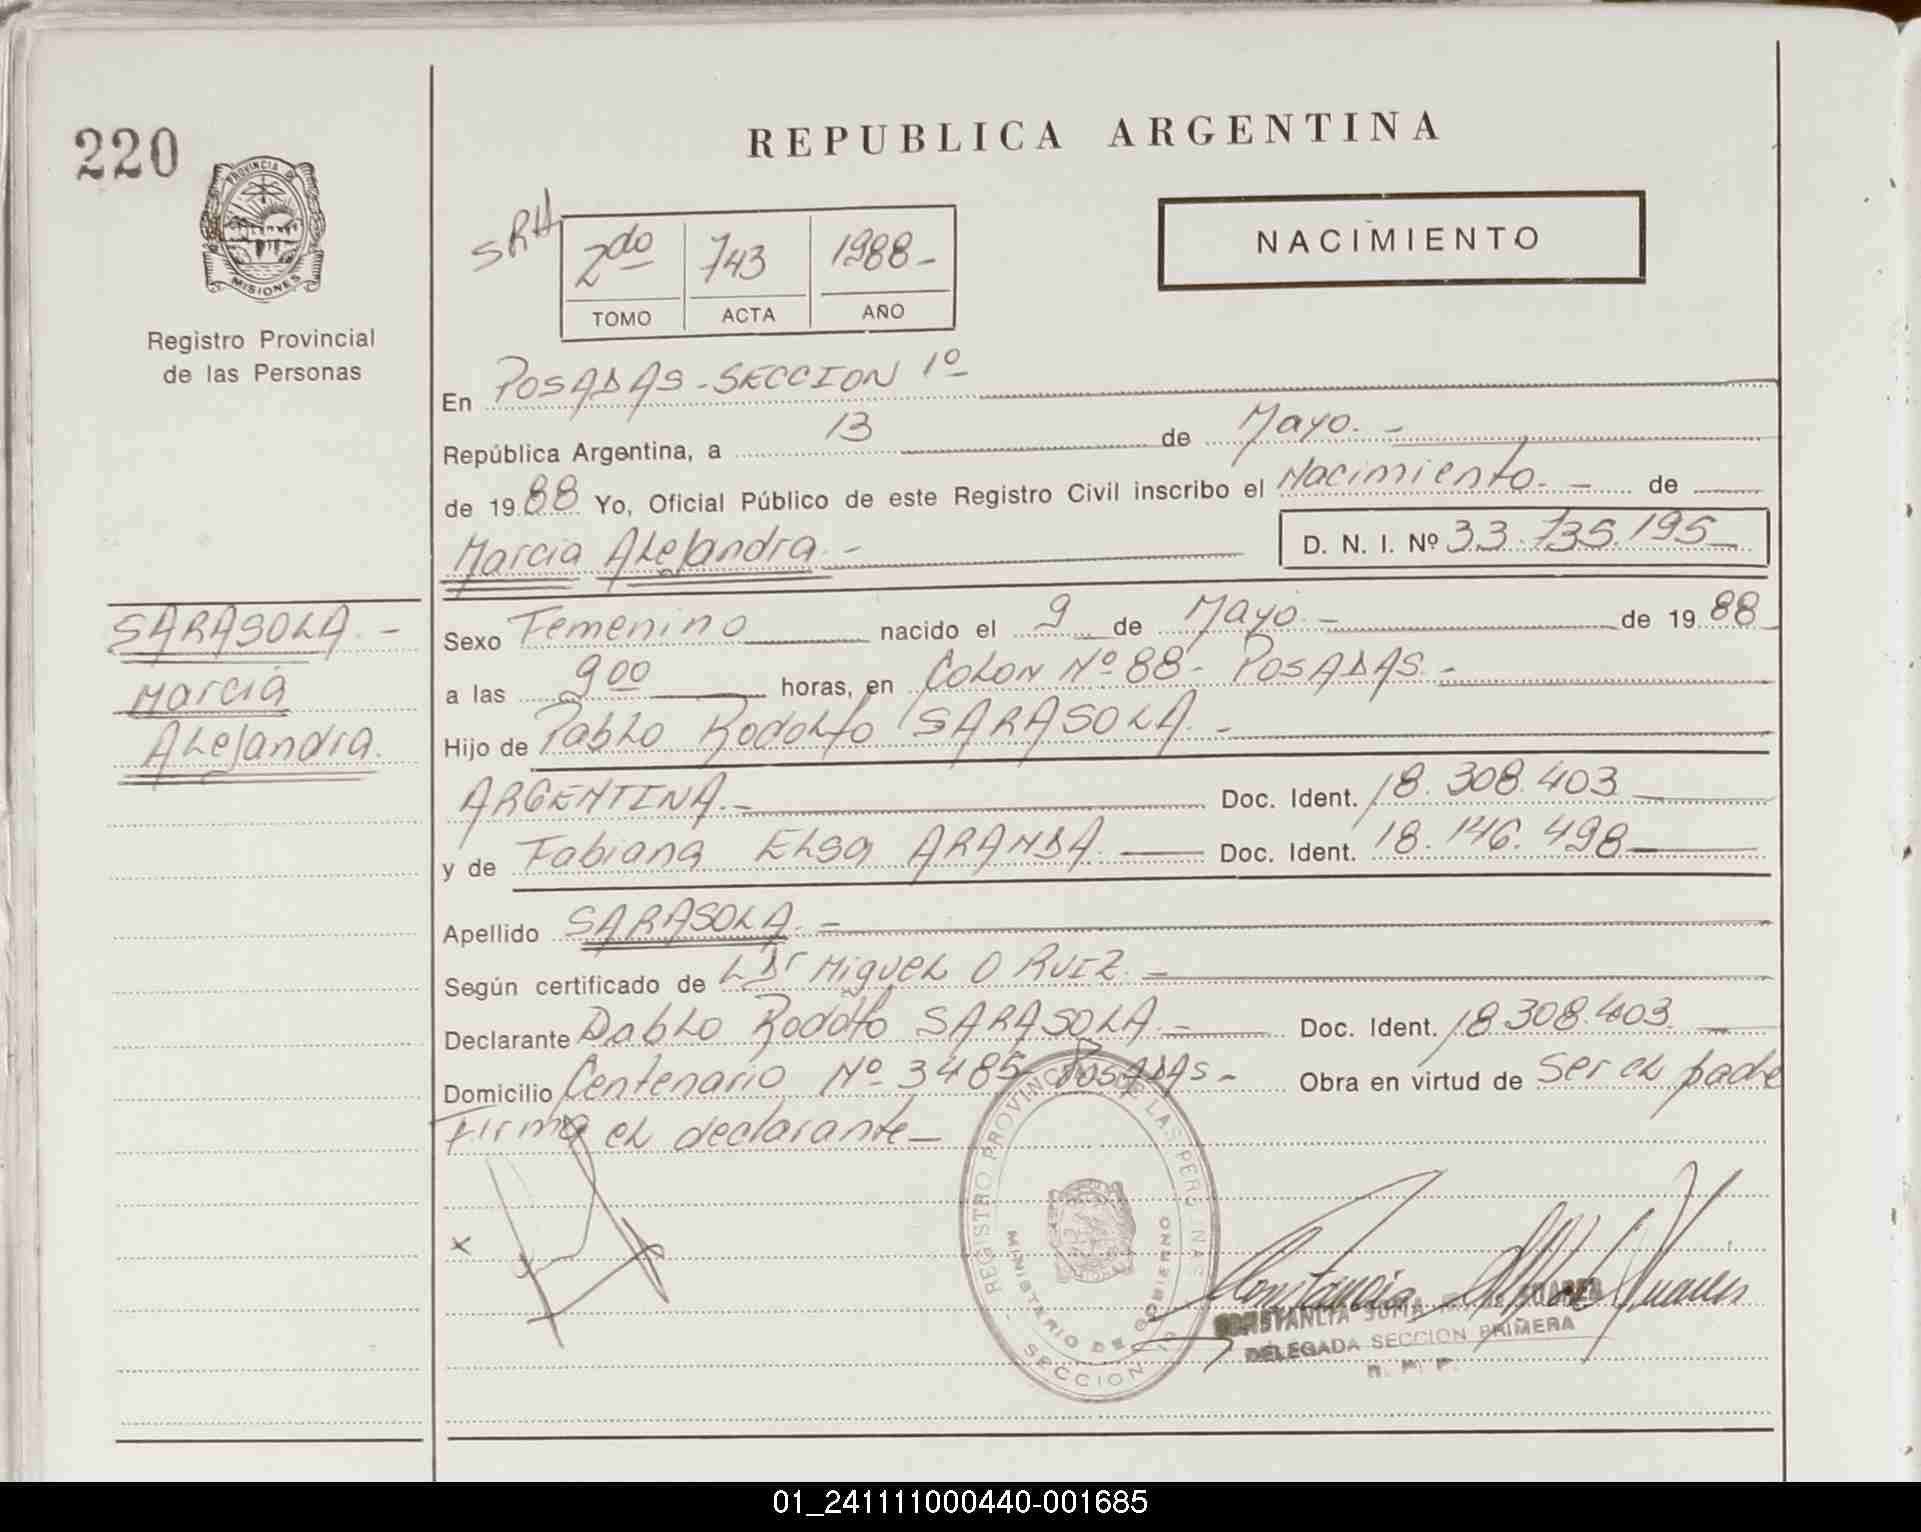 220
PROVINCIA DE
MISIONES
Registro Provincial
de las Personas
SARASOLA.-
Marcia
Alejandra.
REPUBLICA ARGENTINA
NACIMIENTO
SRH
2do 743 1988-
TOMO ACTA AÑO
En POSADAS-SECCION 1º
República Argentina, a 13 de Mayo.-
de 1988 Yo, Oficial Público de este Registro Civil inscribo el Nacimiento.- de
Marcia Alejandra.- D. N. I. Nº 33.735.195
Sexo Femenino nacido el 9 de Mayo.- de 1988
a las 9 00 horas, en COLON Nº 88- POSADAS.-
Hijo de Pablo Rodolfo SARASOLA.-
ARGENTINA.- Doc. Ident. 18.308.403
y de Fabiana Elsa ARANDA. Doc. Ident. 18.146.498
Apellido SARASOLA.-
Según certificado de L Dr Miguel O RUIZ.-
Declarante Pablo Rodolfo SARASOLA.- Doc. Ident. 18.308.403
Domicilio Centenario Nº 3485 POSADAS- Obra en virtud de ser el padre
Firma el declarante-
x
REGISTRO PROVINCIAL DE LAS PERSONAS
MINISTERIO DE GOBIERNO
SECCION 1º
Constancia Suarez
CONSTANCIA SUAREZ
DELEGADA SECCION PRIMERA
R. P. P.
01_241111000440-001685